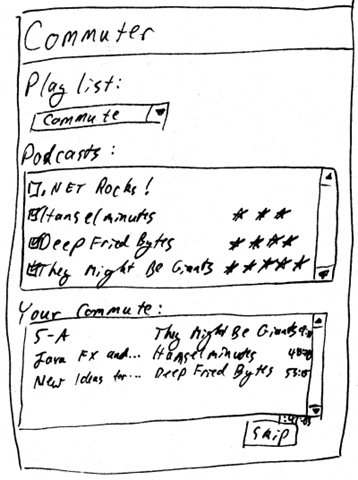 Commuter
Play list:
Commute
Podcasts:
.NET Rocks!
Hanselminutes ★ ★ ★
Deep Fried Bytes ★ ★ ★ ★
They Might Be Giants ★ ★ ★ ★ ★
Your Commute:
5-A They Might Be Giants
Java FX and... Hanselminutes
New Ideas for... Deep Fried Bytes
Skip